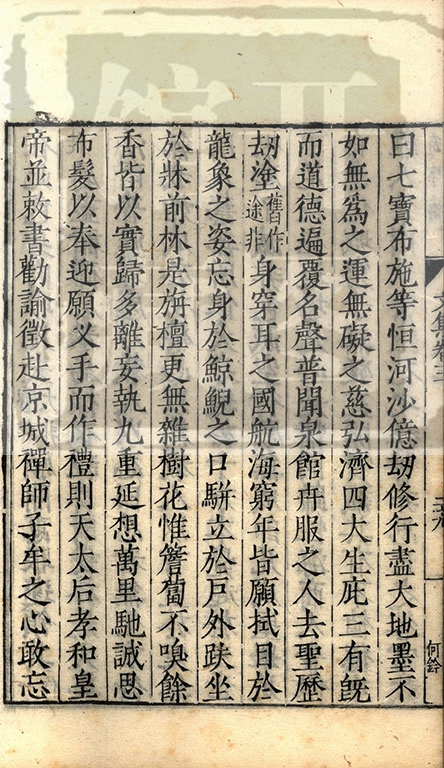 曰七寶布施等恒河沙億刼修行盡大地墨不
如無爲之運無礙之慈弘濟四大生庇三有旣
而道德遍覆名聲普聞泉館卉服之人去聖歷
刼塗舊作途非身穿耳之國航海窮年皆願拭目於
龍象之姿忘身於鯨鯢之口駢立於戶外趺坐
於牀前林是旃檀更無雜樹花惟簷蔔不嗅餘
香皆以實歸多離妄執九重延想萬里馳誠思
布髮以奉迎願义手而作禮則天太后孝和皇
帝並敕書勸諭徵赴京城禪師子牟之心敢忘
何鈴